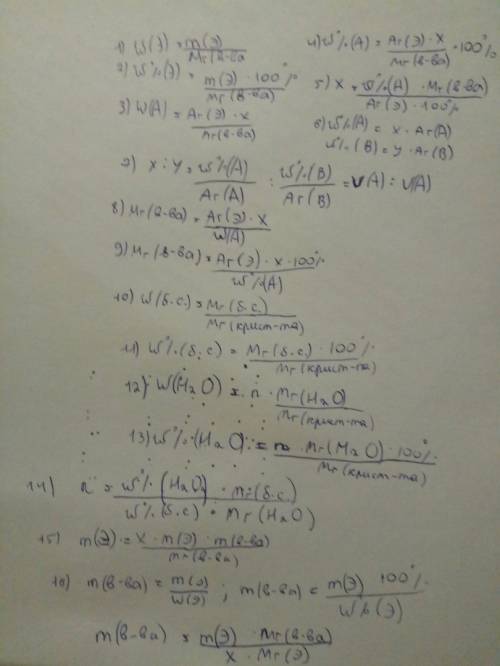 1) W(Э) = m(Э) / Mr(в-ва
2) W%(Э) = m(Э) · 100% / Mr(в-ва)
3) W(A) = Ar(Э) · x / Mr(в-ва)
4) W%(A) = Ar(Э) · X / Mr(в-ва) · 100%
5) X = W%(A) · Mr(в-ва) / Ar(Э) · 100%
6) W%(A) = x · Ar(A)
W%(B) = y · Ar(B)
7) X : Y = W%(A) / Ar(A) : W%(B) / Ar(B) = ν(A) : ν(A)
8) Mr(в-ва) = Ar(Э) · X / W(A)
9) Mr(в-ва) = Ar(Э) · X · 100% / W%(A)
10) W(б.с.) = Mr(б.с.) / Mr(крист-та)
11) W%(б.с) = Mr(б.с.) · 100% / Mr(крист-та)
12) W(H2O) = n · Mr(H2O) / Mr(крист-та)
13) W%(H2O) = n · Mr(H2O) · 100% / Mr(крист-та)
14) n = W%(H2O) · Mr(б.с.) / W%(б.с) · Mr(H2O)
15) m(Э) = X · m(Э) · m(в-ва) / Mr(в-ва)
16) m(в-ва) = m(Э) / W(Э) ; m(в-ва) = m(Э) · 100% / W%(Э)
m(в-ва) = m(Э) · Mr(в-ва) / X · Mr(Э)